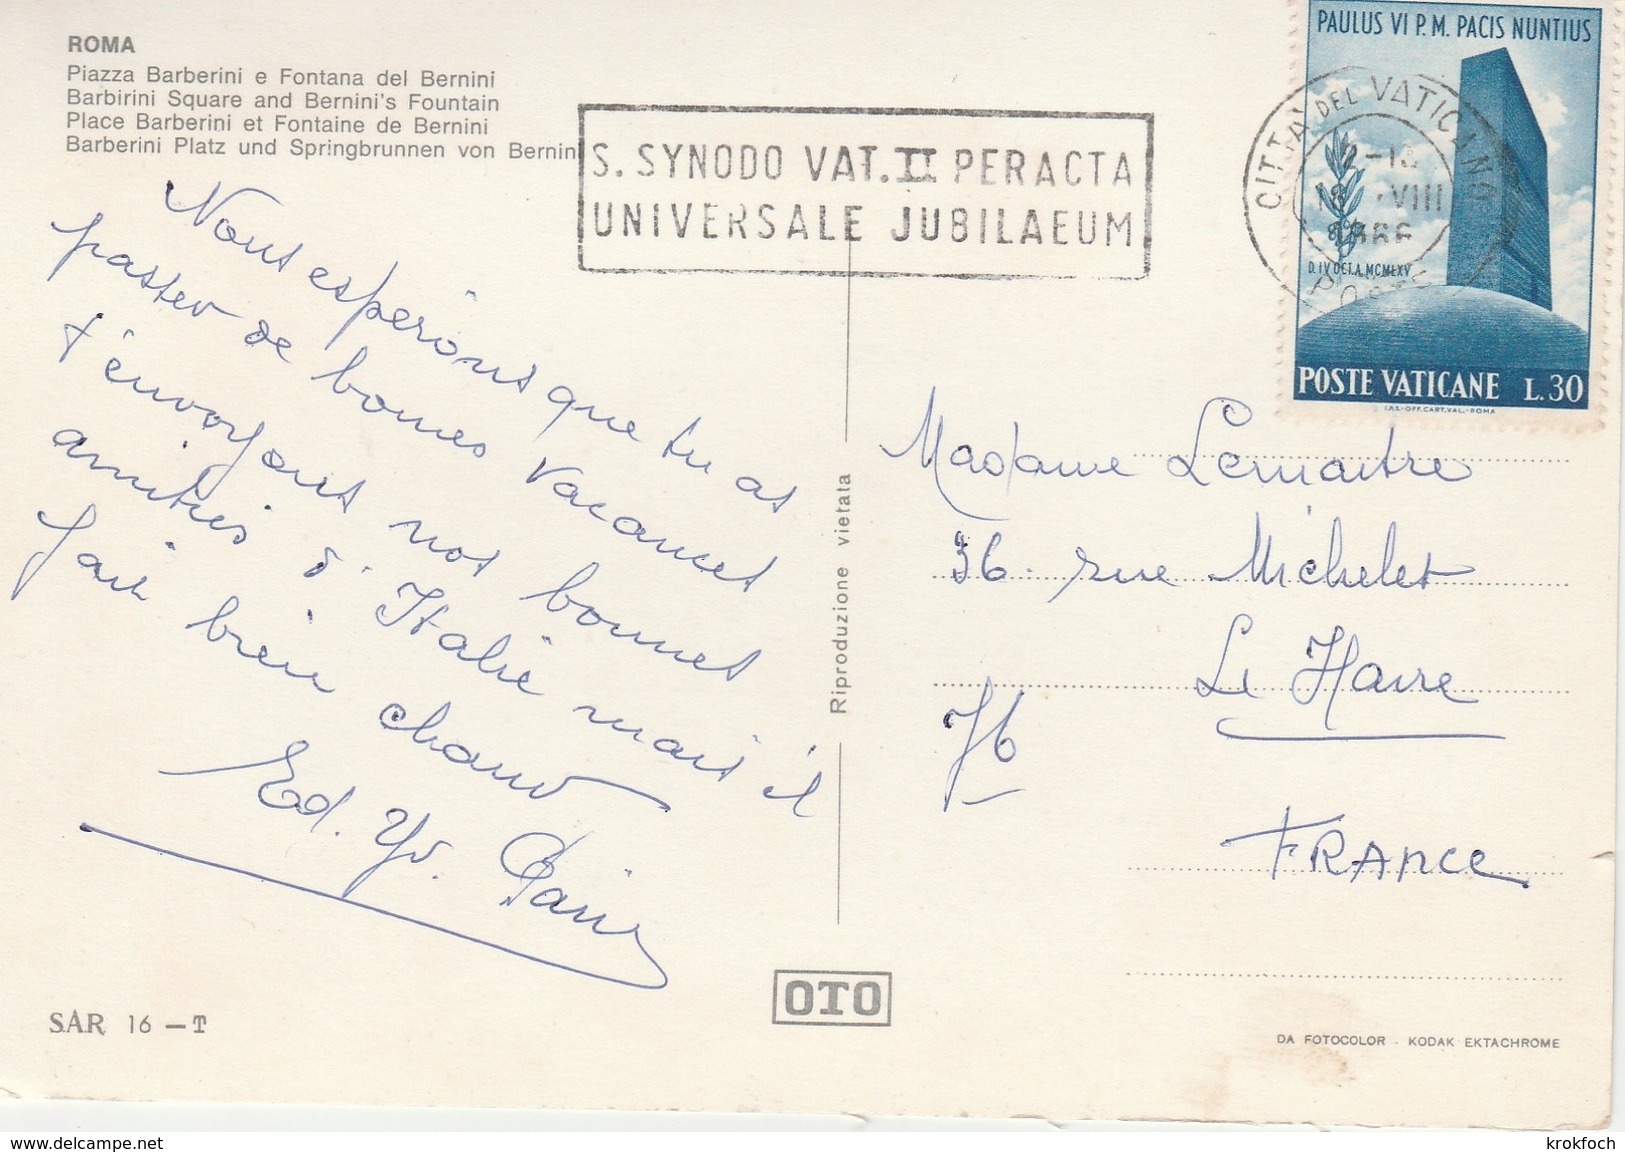 ROMA
Piazza Barberini e Fontana del Bernini
Barbirini Square and Bernini's Fountain
Place Barberini et Fontaine de Bernini
Barberini Platz und Springbrunnen von Bernini
S. SYNODO VAT. II PERACTA
UNIVERSALE JUBILAEUM
PAULUS VI P. M. PACIS NUNTIUS
CITTA' DEL VATICANO
18 VIII
1966
POSTE
D. IV OCT. A. MCMLXV
POSTE VATICANE L. 30
I.P.S.-OFF. CART. VAL.-ROMA
Nous espérons que tu as
passer de bonnes vacances
t'envoyons nos bonnes
amitiés d'Italie mais il
fait bien chaud
Ed. Yv.
Riproduzione vietata
Madame Lemaitre
36 rue Michelet
Le Havre
76
FRANCE
OTO
S.A.R. 16 - T
DA FOTOCOLOR - KODAK EKTACHROME
www.delcampe.net
krokfoch